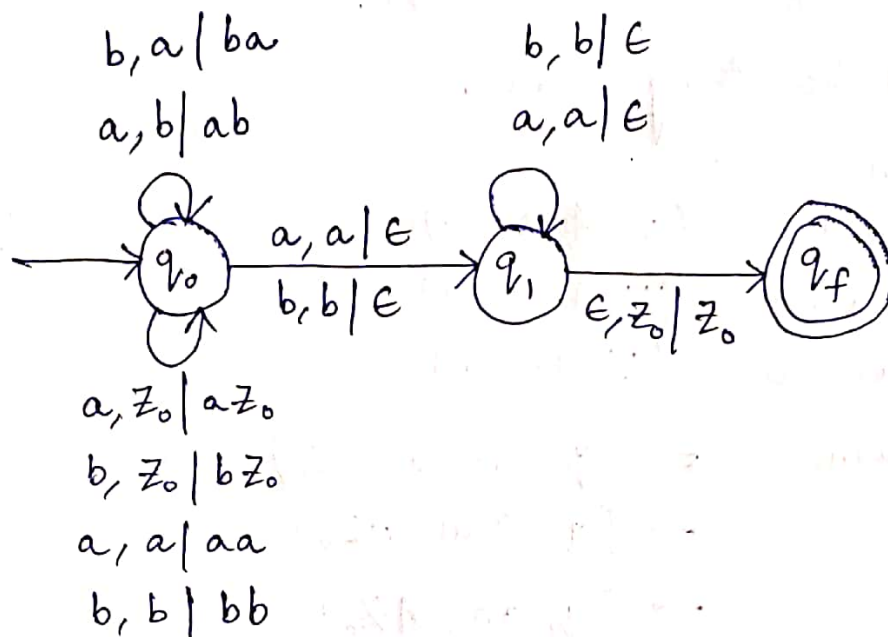 b, a | ba
a, b | ab
b, b | ϵ
a, a | ϵ
q₀
a, a | ϵ
b, b | ϵ
q₁
ϵ, z₀ | z₀
q_f
a, z₀ | az₀
b, z₀ | bz₀
a, a | aa
b, b | bb